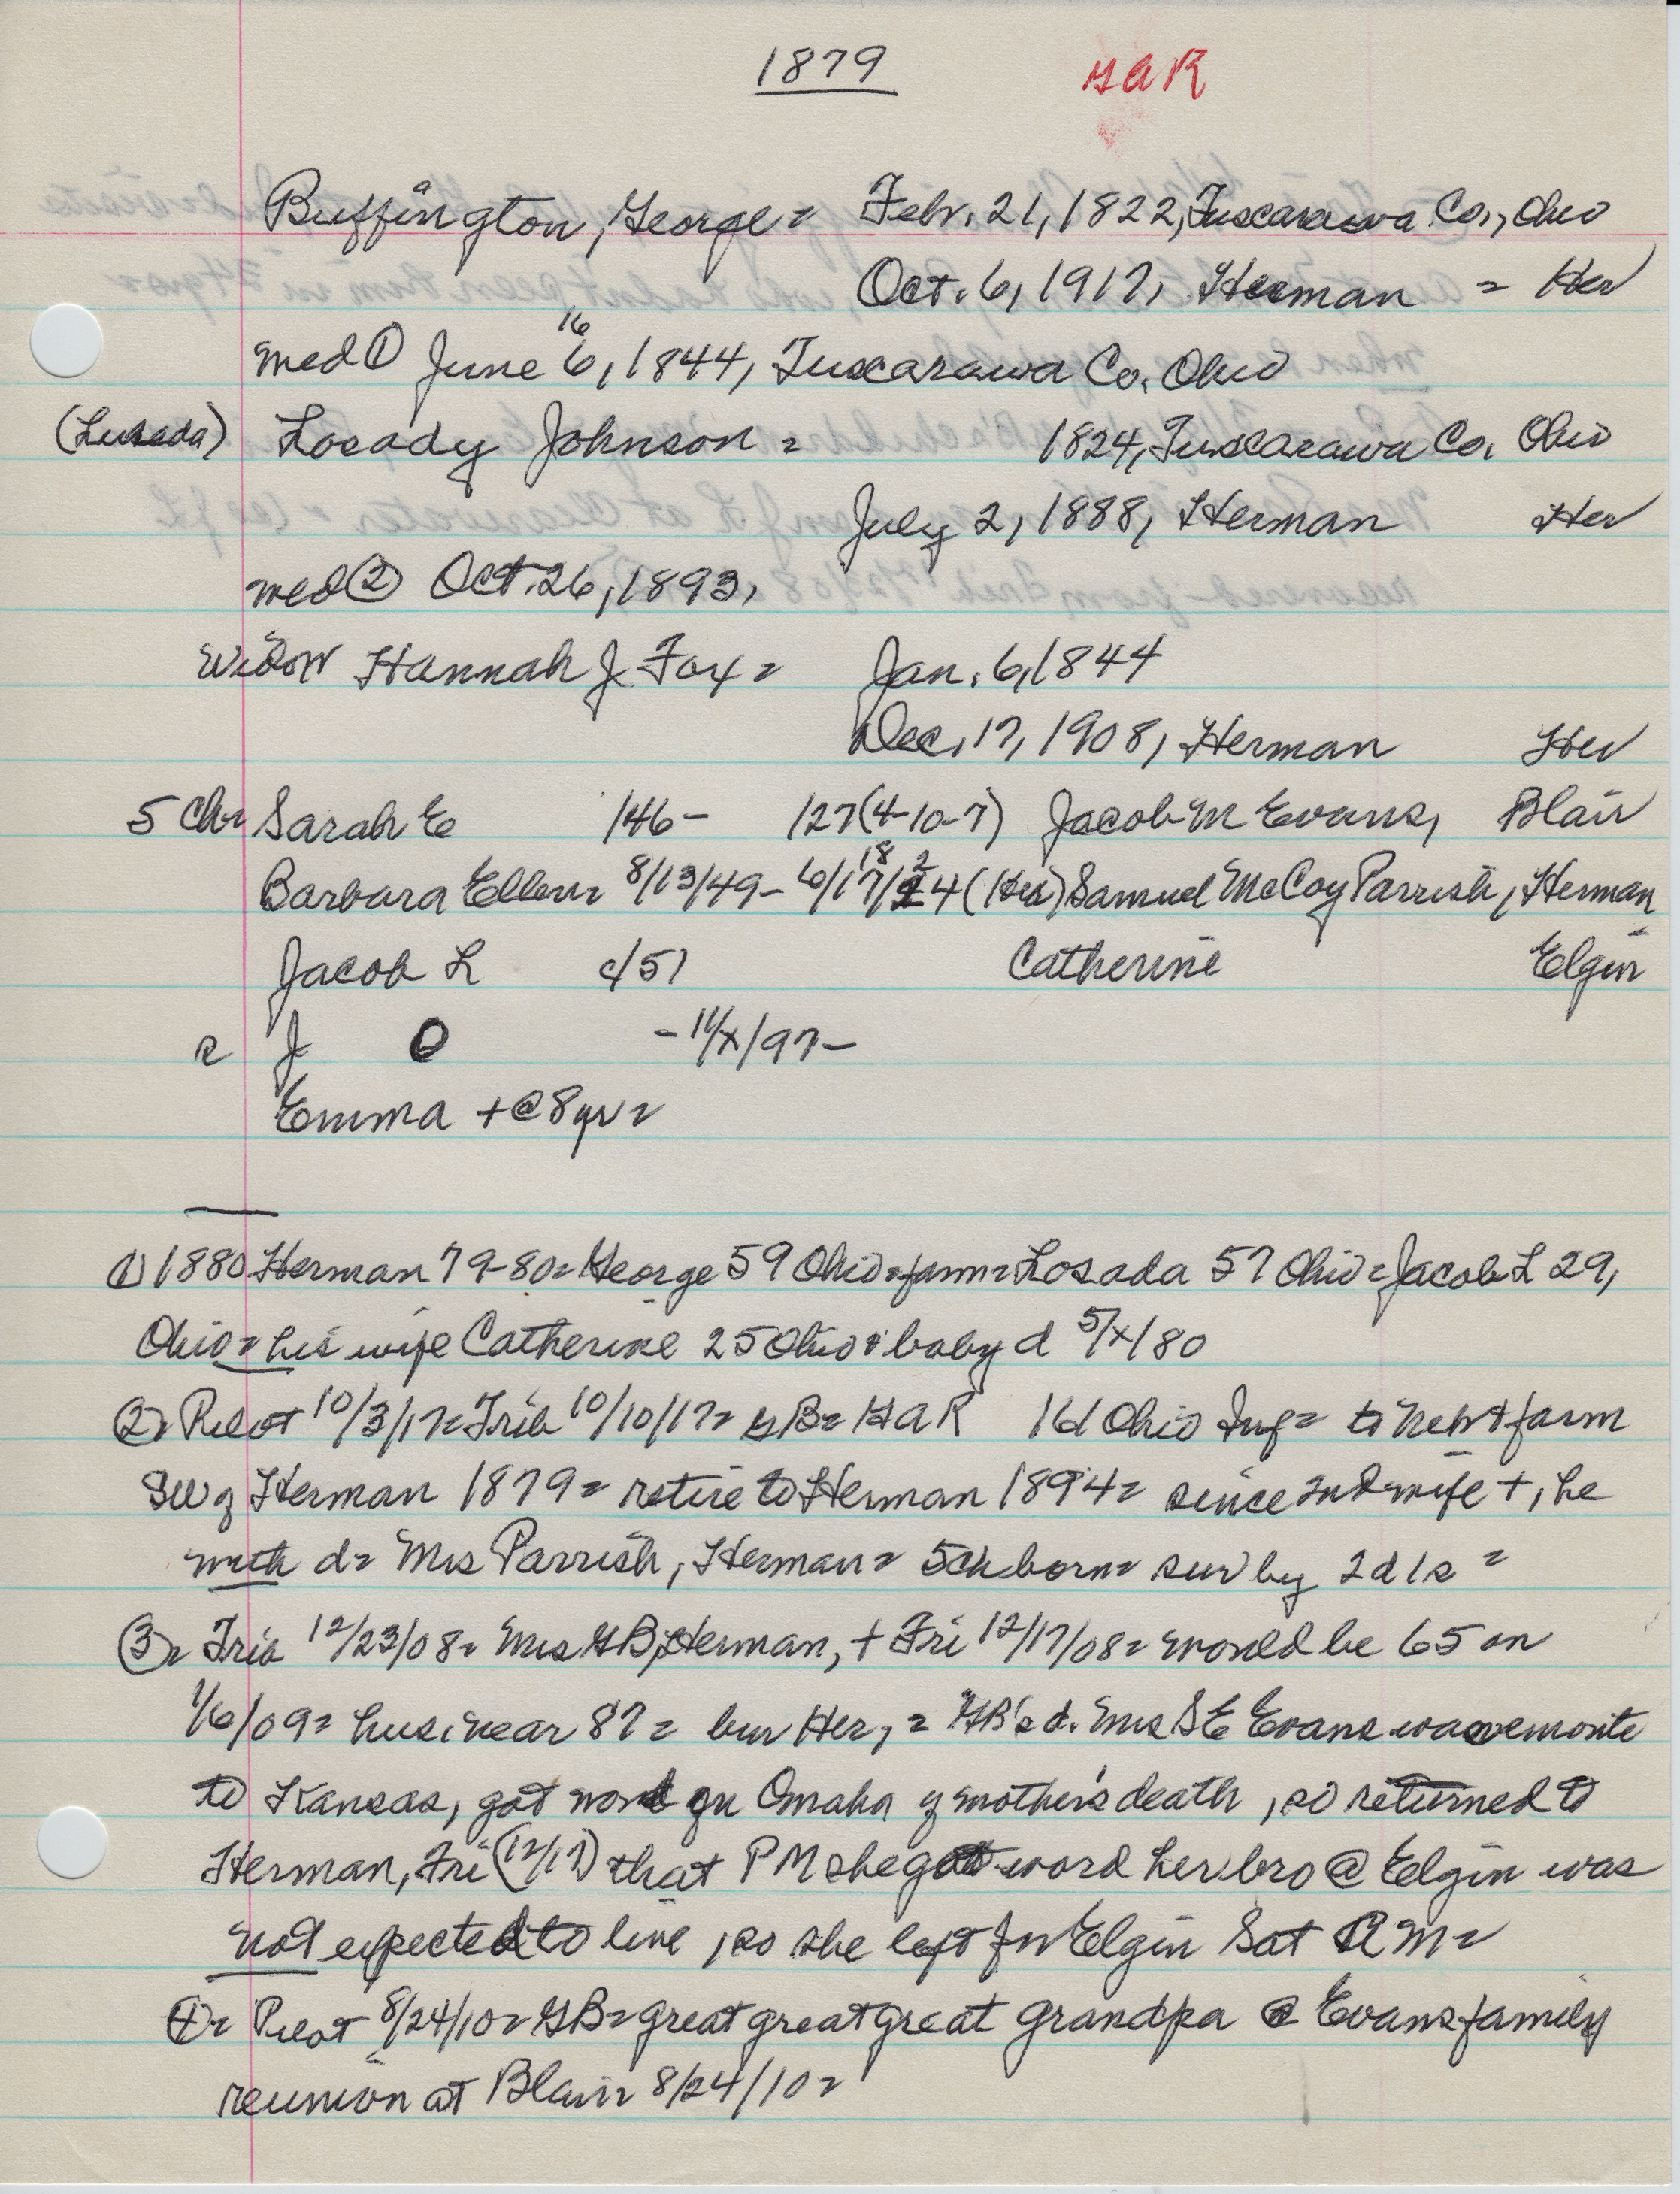 1879 GAR
Buffington, George = Febr. 21, 1822, Tuscarawa Co., Ohio
Oct. 6, 1917, Herman = Her
16
med ① June 6, 1844, Tuscarawa Co. Ohio
(Lusada) Losady Johnson = 1824, Tuscarawa Co. Ohio
July 2, 1888, Herman Her
med ② Oct. 26, 1893,
widow Hannah J. Fox = Jan. 6, 1844
Dec. 17, 1908, Herman Her
5 Ch = Sarah E /46 - /27 (4-10-7) Jacob M Evans, Blair
18 2
Barbara Ellen = 8/13/49 - 6/17/24 (Her) Samuel McCoy Parrish, Herman
Jacob L c/51 Catherine Elgin
s J O - 11/x/97 -
Emma + @ 8 yr =
1) 1880 Herman 79-80 = George 59 Ohio = farm = Losada 57 Ohio = Jacob L 29,
Ohio = his wife Catherine 25 Ohio & baby d 5/x/80
② = Pilot 10/3/17 = Trib 10/10/17 = GB = GAR 161 Ohio Inf = to Neb & farm
SW of Herman 1879 = retire to Herman 1894 = since 2nd wife +, he
with d = Mrs Parrish, Herman = 5 ch born = sur by 2 d 1 s =
③ = Trib 12/23/08 = Mrs GB, Herman, + Fri 12/17/08 = would be 65 on
1/6/09 = hus. near 87 = bur Her, = GB's d. Mrs S E Evans was enroute
to Kansas, got word in Omaha of mother's death, so returned to
Herman, Fri (12/17) that PM she got word her bro @ Elgin was
not expected to live, so she left for Elgin Sat AM =
④ = Pilot 8/24/10 = GB = great great great grandpa @ Evans family
reunion at Blair = 8/24/10 =